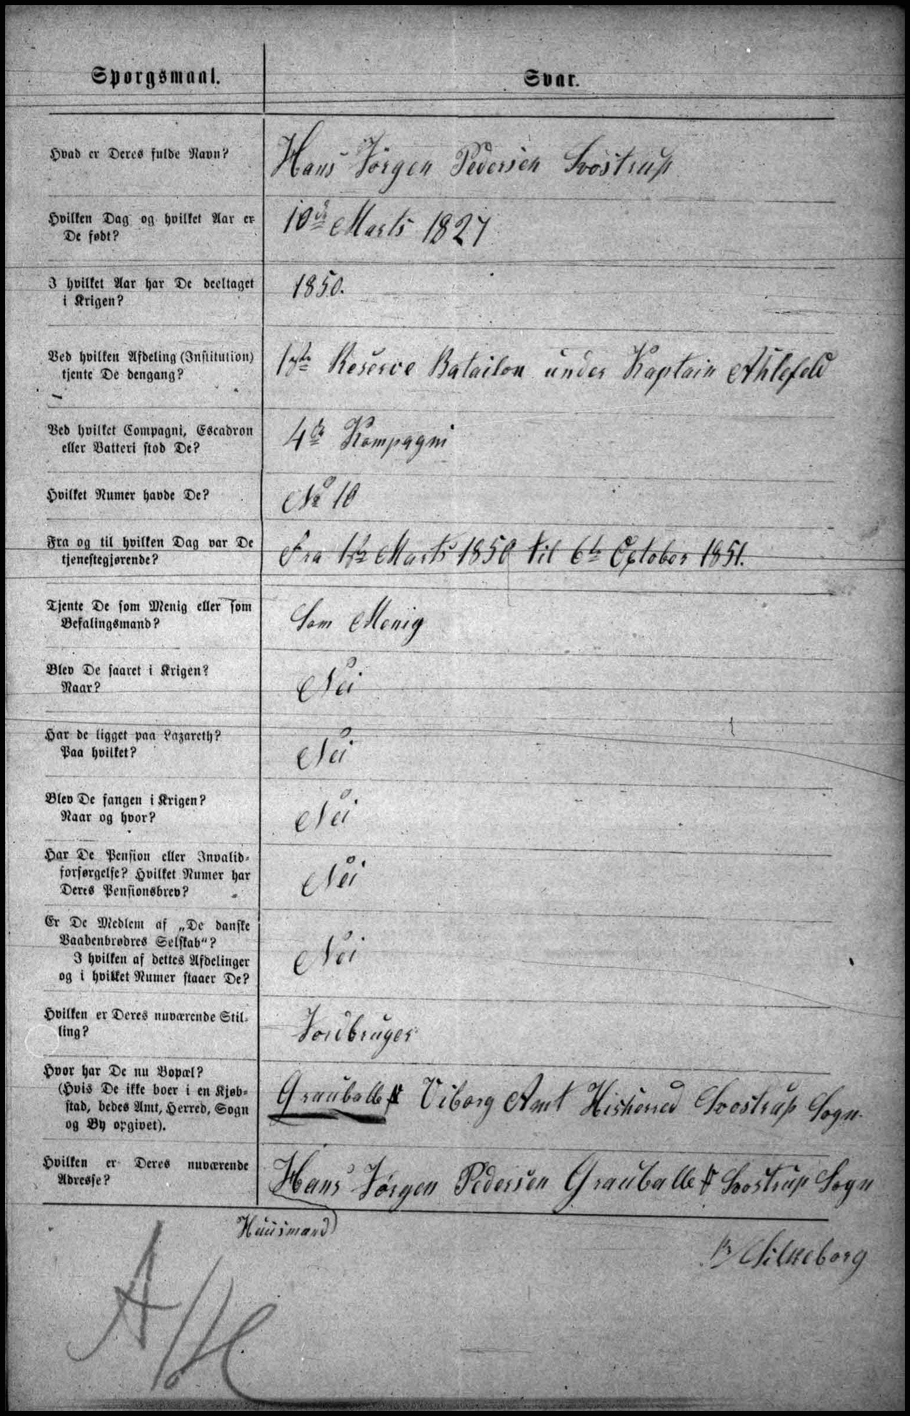 Spørgsmaal.
Svar.
Hvad er Deres fulde Navn?
Hans Jørgen Pedersen Svostrup
Hvilken Dag og hvilket Aar er
De født?
10de Marts 1827
I hvilket Aar har De deeltaget
i Krigen?
1850.
Ved hvilken Afdeling (Institution)
tjente De dengang?
1ste Reserve Batailon under Kaptain Ahlefeld
Ved hvilket Compagni, Escadron
eller Batteri stod De?
4de Kompagni
Hvilket Numer havde De?
No 10
Fra og til hvilken Dag var De
tjenestegjørende?
Fra 1ste Marts 1850 til 6te October 1851.
Tjente De som Menig eller som
Befalingsmand?
Som Menig
Blev De saaret i Krigen?
Naar?
Nei
Har de ligget paa Lazareth?
Paa hvilket?
Nei
Blev De fangen i Krigen?
Naar og hvor?
Nei
Har De Pension eller Invalid-
forsørgelse? Hvilket Numer har
Deres Pensionsbrev?
Nei
Er De Medlem af „De danske
Vaabenbrødres Selskab“?
I hvilken af dettes Afdelinger
og i hvilket Numer staaer De?
Nei
Hvilken er Deres nuværende Stil-
ling?
Jordbruger
Hvor har De nu Bopæl?
(Hvis De ikke boer i en Kjøb-
stad, bedes Amt, Herred, Sogn
og By opgivet).
Grauballe Viborg Amt Hisherred Svostrup Sogn
Hvilken er Deres nuværende
Adresse?
Hans Jørgen Pedersen Grauballe Svostrup Sogn
Huusmand
Silkeborg